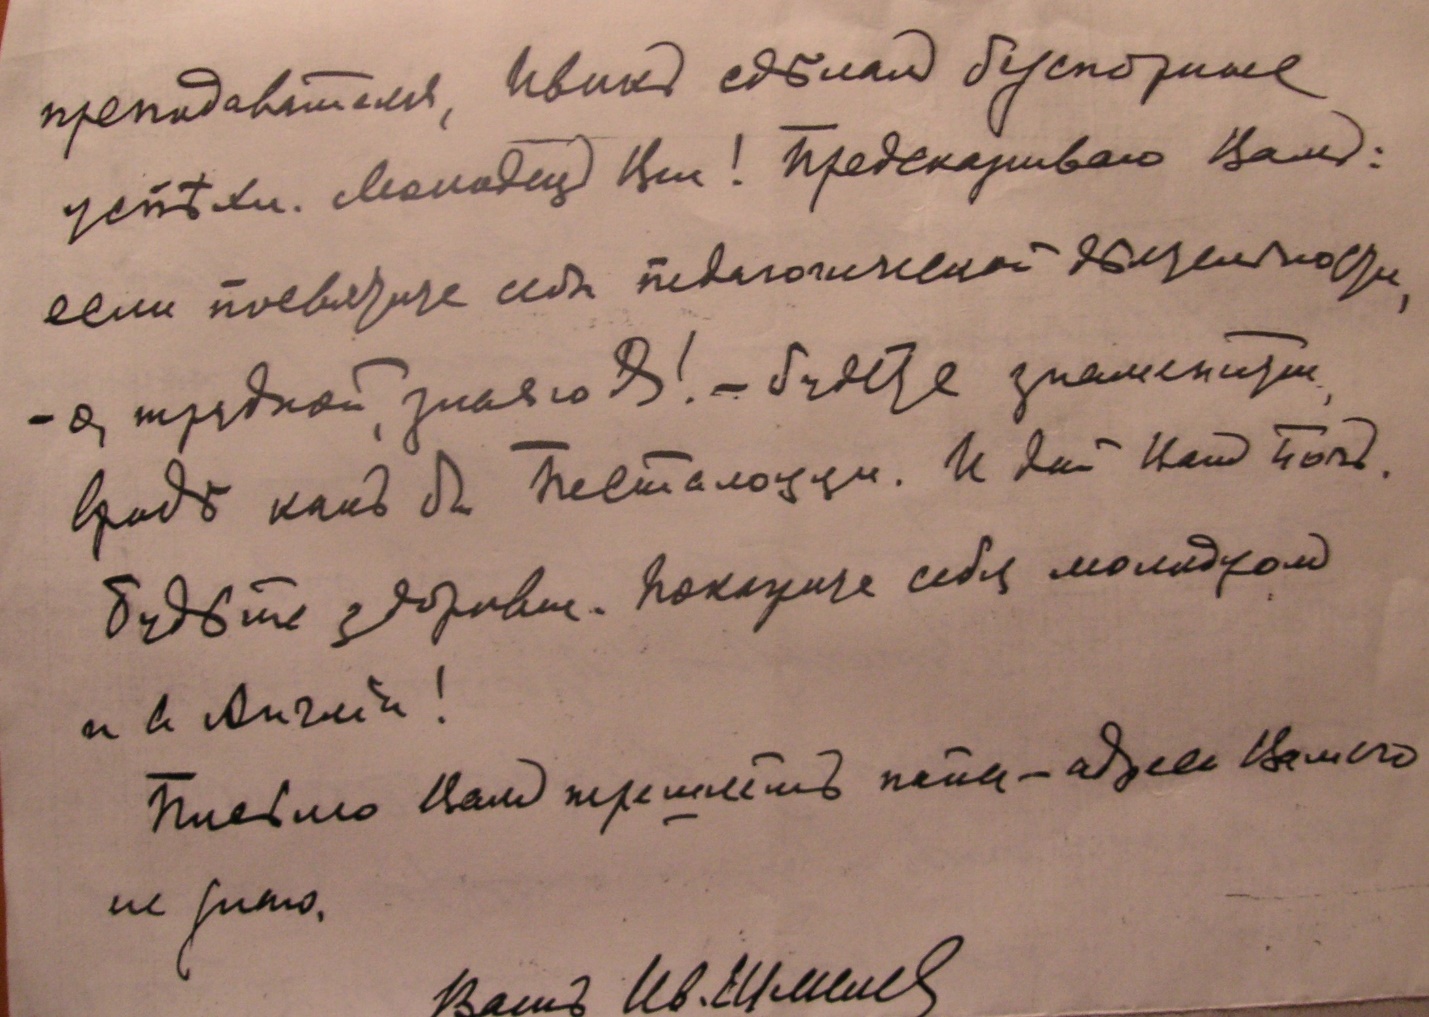 преподавателя, Ивикъ сдѣлалъ безспорные
успѣхи. Молодецъ Вы! Предсказываю Вамъ:
если посвятите себя педагогической дѣятельности,
– о, трудной, знаю я! – будете знамениты,
вродѣ какъ бы Песталоцци. И дай Вамъ Богъ.
Будьте здоровы. Покажите себя молодцомъ
и въ Англіи!
Письмо Вамъ перешлетъ папа – адреса Вашего
не знаю.
Вашъ Ив. Шмелев